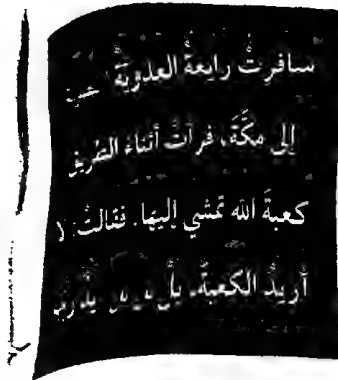 سافرتْ رابعةُ العدويّة
إلى مكّةَ، فرأتْ أثناءَ الطريق
كعبةَ الله تمشي إليها. فقالتْ: لا
أريدُ الكعبةَ، بل